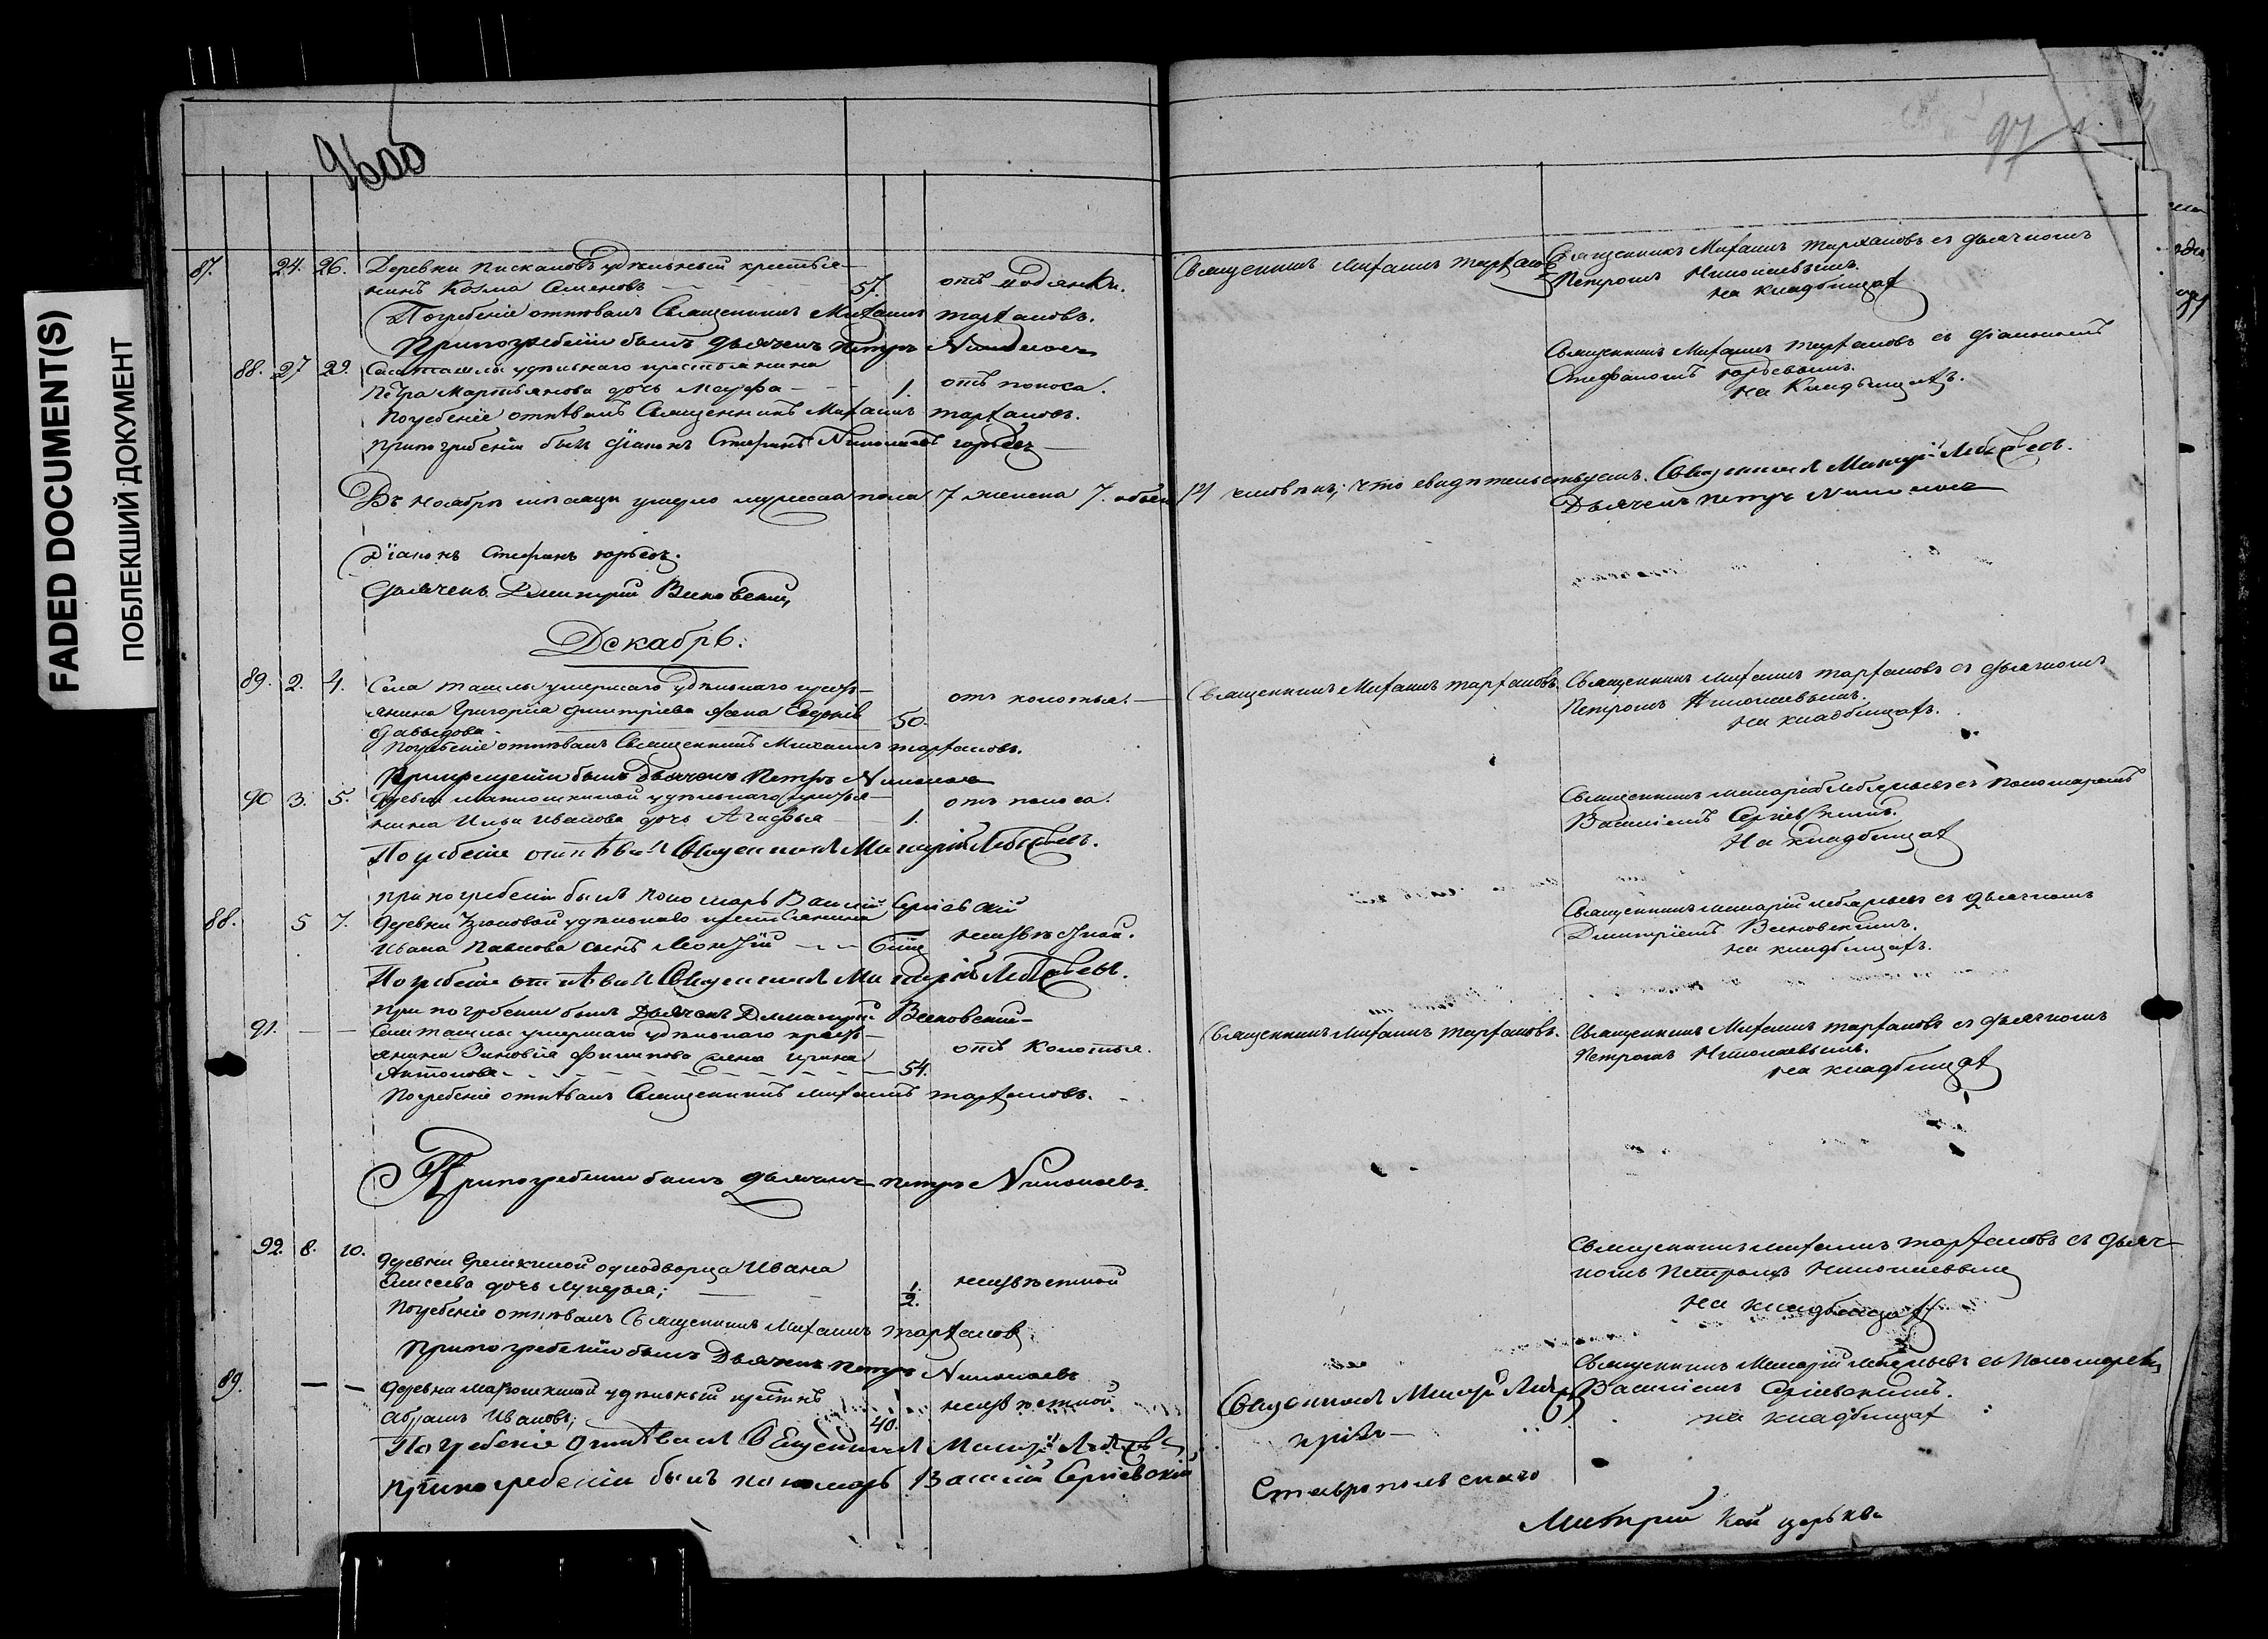 FADED DOCUMENT(S)
ПОБЛЕКШИЙ ДОКУМЕНТ
96об
97
87. 24. 26. Деревни Пискаловъ удѣльный крестья-
нинъ Козма Семеновъ 57. отъ водянки.
Священникъ Михаилъ Тарханов
Священникъ Михаилъ Тархановъ съ дьячкомъ
Петромъ Николаевымъ.
на кладбищѣ
Погребеніе отпѣвалъ Священникъ Михаилъ Тархановъ.
При погребеніи былъ дьячекъ Петръ Николаев
88. 27 29. Села Ташлы удѣльнаго крестьянина
Петра Мартьянова дочь Марфа 1. отъ поноса.
Священникъ Михаилъ Тархановъ съ діакономъ
Стефаномъ Юрьевымъ.
на Кладбищѣ.
Погребеніе отпѣвалъ Священникъ Михаилъ Тархановъ.
При погребеніи былъ діаконъ Стефанъ Юрьевъ
Въ ноябрѣ мѣсяцѣ умерло мужеска пола 7 женска 7. обоего 14 человѣкъ; что свидѣтельствуемъ. Священникъ Макарій Лебедевъ.
Дьячекъ Петръ Николаевъ
Діаконъ Стефанъ Юрьевъ.
Дьячекъ Димитрій Висковскій
Декабрь:
89. 2. 4. Села Ташлы умершаго удѣльнаго кресть-
янина Григорія Димитріева жена Евдокія
Давыдова 50. отъ колотья.
Священникъ Михаилъ Тархановъ.
Священникъ Михаилъ Тархановъ съ дьячкомъ
Петромъ Николаевымъ.
на кладбищѣ.
Погребеніе отпѣвалъ Священникъ Михаилъ Тархановъ.
При погребеніи былъ дьячекъ Петръ Николаевъ
90 3. 5. Деревни удѣльнаго крестья-
нина Ильи Иванова дочь Агафья 1. отъ поноса.
Священникъ Макарій Лебедевъ съ Пономаремъ
Василіемъ Сергіевскимъ.
На кладбищѣ
Погребеніе отпѣвалъ Священникъ Макарій Лебедевъ.
при погребеніи былъ пономарь Василій Сергіевскій
88. 5 7. Деревни Узюковой удѣльнаго крестьянина
Ивана Павлова сынъ неизвѣстной.
Священникъ Макарій Лебедевъ съ дьячкомъ
Димитріемъ Висковскимъ.
на кладбищѣ.
Погребеніе отпѣвалъ Священникъ Макарій Лебедевъ.
При погребеніи былъ Дьячекъ Димитрій Висковскій
91. — — Села Ташлы умершаго удѣльнаго кресть-
янина Зиновія Филипова жена Ирина
Антонова 54. отъ Колотья.
Священникъ Михаилъ Тархановъ.
Священникъ Михаилъ Тархановъ съ дьячкомъ
Петромъ Николаевымъ.
на кладбищѣ
Погребеніе отпѣвалъ Священникъ Михаилъ Тархановъ.
При погребеніи былъ дьячекъ Петръ Николаевъ.
92. 8. 10. Деревни Еремкиной однодворца Ивана
Елисеева дочь Лукерья; 1/2. неизвѣстной
Священникъ Михаилъ Тархановъ съ дьяч-
комъ Петромъ Николаевымъ
на кладбищѣ
Погребеніе отпѣвалъ Священникъ Михаилъ Тарханов
При погребеніи былъ Дьячекъ Петръ Николаевъ
89. — — Деревни удѣльный крестьнъ
Абрамъ Ивановъ; 40. неизвѣстной.
Священникъ Макарій
Священникъ Макарій Лебедевъ съ Пономаремъ
Василіемъ Сергіевскимъ.
на кладбищѣ
Погребеніе отпѣвалъ Священникъ Макарій Лебедевъ
При погребеніи былъ пономарь Василій Сергіевскій
Ставропольскаго
кой церкви